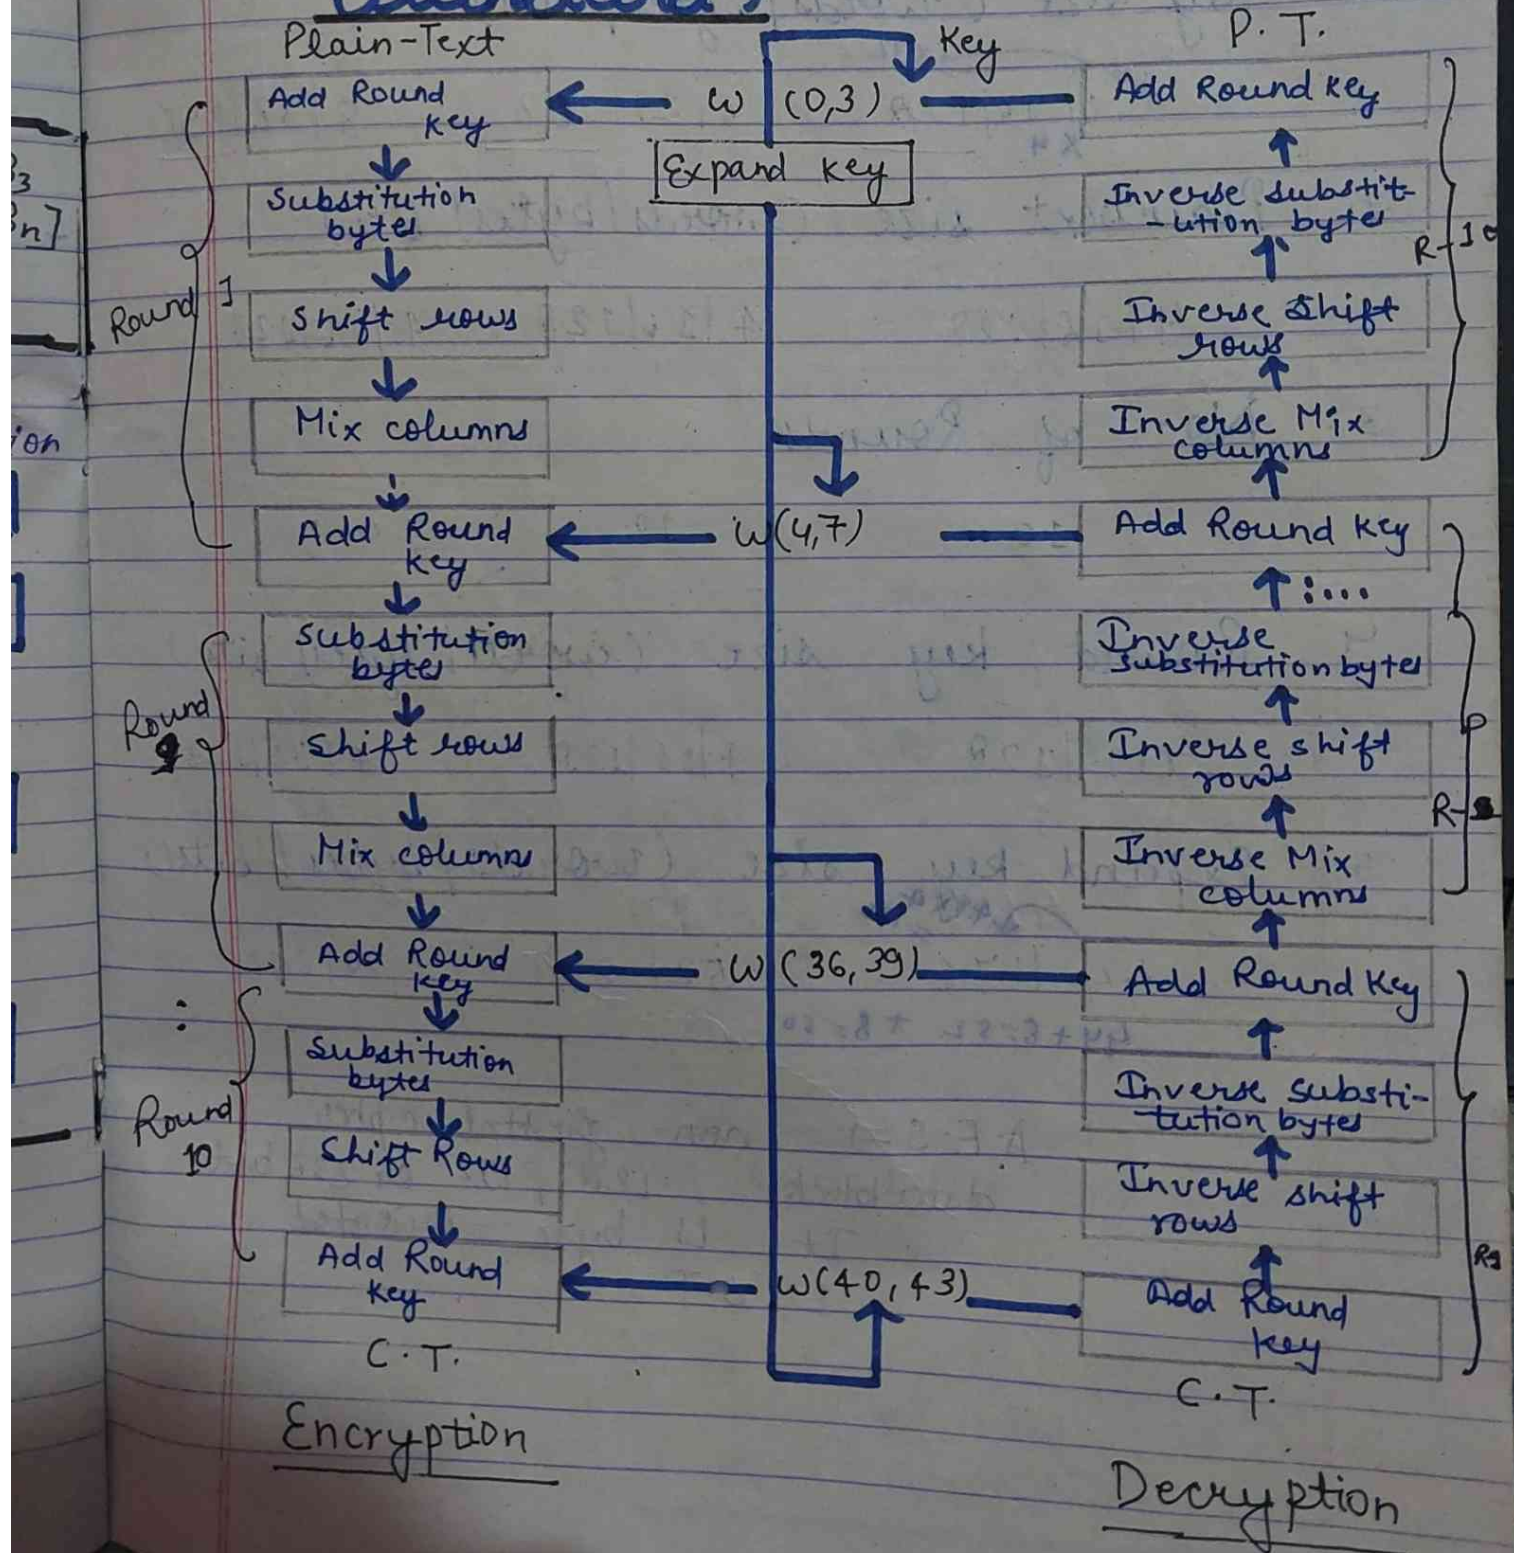 Plain-Text
Add Round
key
Substitution
bytes
Shift rows
Mix columns
Add Round
key
Substitution
bytes
Shift rows
Mix columns
Add Round
key
Substitution
bytes
Shift Rows
Add Round
key
C.T.
Encryption
Round 1
Round
9
:
Round
10
Key
W (0,3)
Expand key
W(4,7)
W (36,39)
W(40,43)
P. T.
Add Round key
Inverse substit-
-ution bytes
Inverse Shift
rows
Inverse Mix
columns
Add Round key
:...
Inverse
substitution bytes
Inverse shift
rows
Inverse Mix
columns
Add Round Key
Inverse substi-
tution bytes
Inverse shift
rows
Add Round
key
C.T.
Decryption
R-10
R-
ion